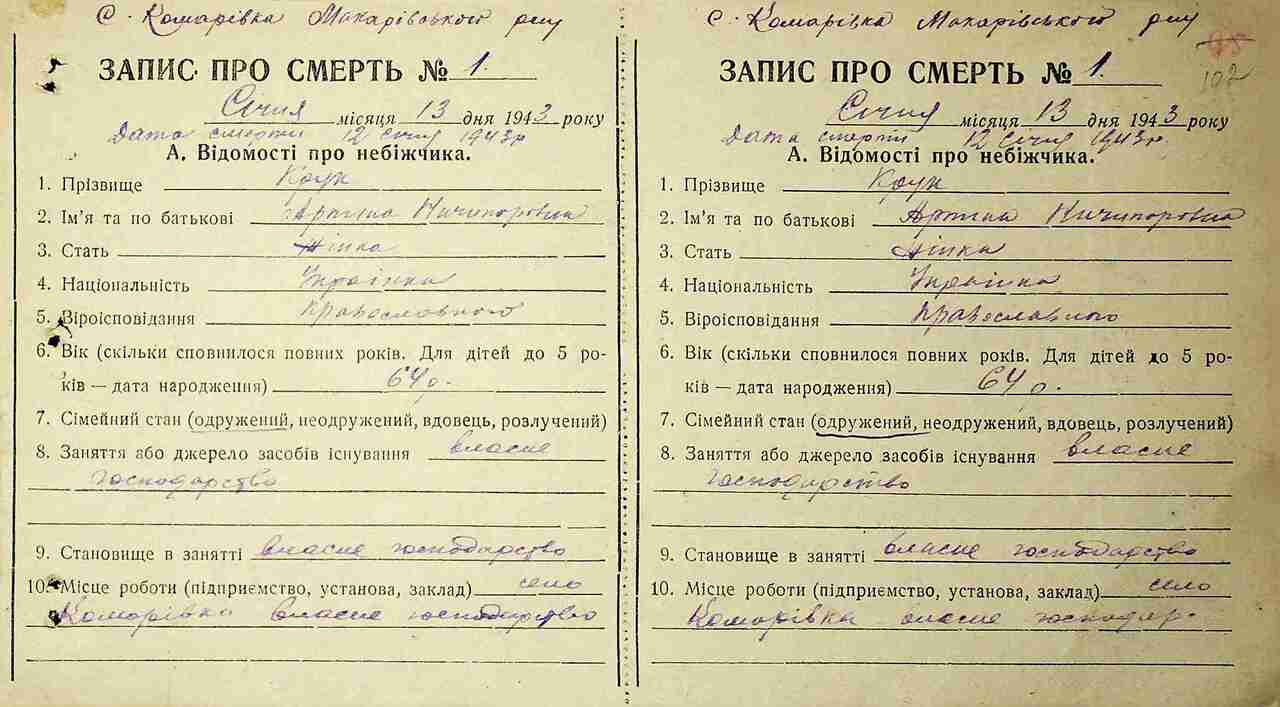 с. Комарівка Макарівського р-ну
ЗАПИС ПРО СМЕРТЬ № 1.
Січня місяця 13 дня 1943 року
Дата смерти 12 січня 1943 р
А. Відомості про небіжчика.
1. Прізвище
2. Ім'я та по батькові Ничипоровна
3. Стать жінка
4. Національність Українка
5. Віроісповідання Православного
6. Вік (скільки сповнилося повних років. Для дітей до 5 ро-
ків — дата народження) 64 р.
7. Сімейний стан (одружений, неодружений, вдовець, розлучений)
8. Заняття або джерело засобів існування власне
господарство
9. Становище в занятті власне господарство
10. Місце роботи (підприємство, установа, заклад) село
Комарівка власне господарство
с. Комарівка Макарівського р-ну
102
ЗАПИС ПРО СМЕРТЬ № 1.
Січня місяця 13 дня 1943 року
Дата смерти 12 січня 1943 р.
А. Відомості про небіжчика.
1. Прізвище
2. Ім'я та по батькові Ничипоровна
3. Стать жінка
4. Національність Українка
5. Віроісповідання православного
6. Вік (скільки сповнилося повних років. Для дітей до 5 ро-
ків — дата народження) 64 р.
7. Сімейний стан (одружений, неодружений, вдовець, розлучений)
8. Заняття або джерело засобів існування власне
господарство
9. Становище в занятті власне господарство
10. Місце роботи (підприємство, установа, заклад) село
Комарівка власне господар.